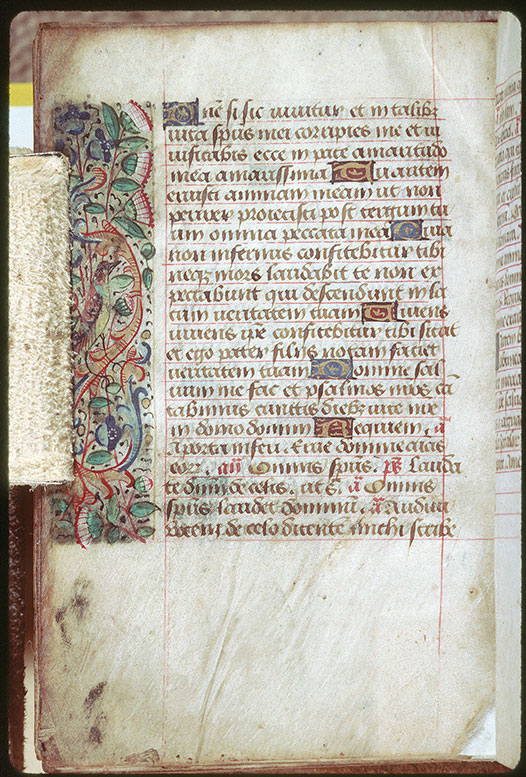 Dn̄e si sic vivitur et in talibꝫ
vita sp̄us mei corripies me et vi
vificabis ecce in pace amaritudo
mea amarissima Tu autem
eruisti animam meam ut non
periret proiecisti post tergum tu
um omnia peccata mea Quia
non infernus confitebitur tibi
neqꝫ mors laudabit te non ex
pectabunt qui descendunt in la
cum veritatem tuam Vivens
vivens ip̄e confitebitur tibi sicut
et ego pater filiis notam faciet
veritatem tuam Domine sal
vum me fac et psalmos nr̄os cā
tabimus cunctis diebꝫ vite nr̄e
in domo domini Requiem. a
A porta inferi. Erue domine aīas
eorꝫ. añ Omnis sp̄us. ps̄ Lauda
te dn̄m de celis. ut s̄. ā Omnis
sp̄us laudet dominū. ā Audivi
vocem de celo dicentē michi scribe